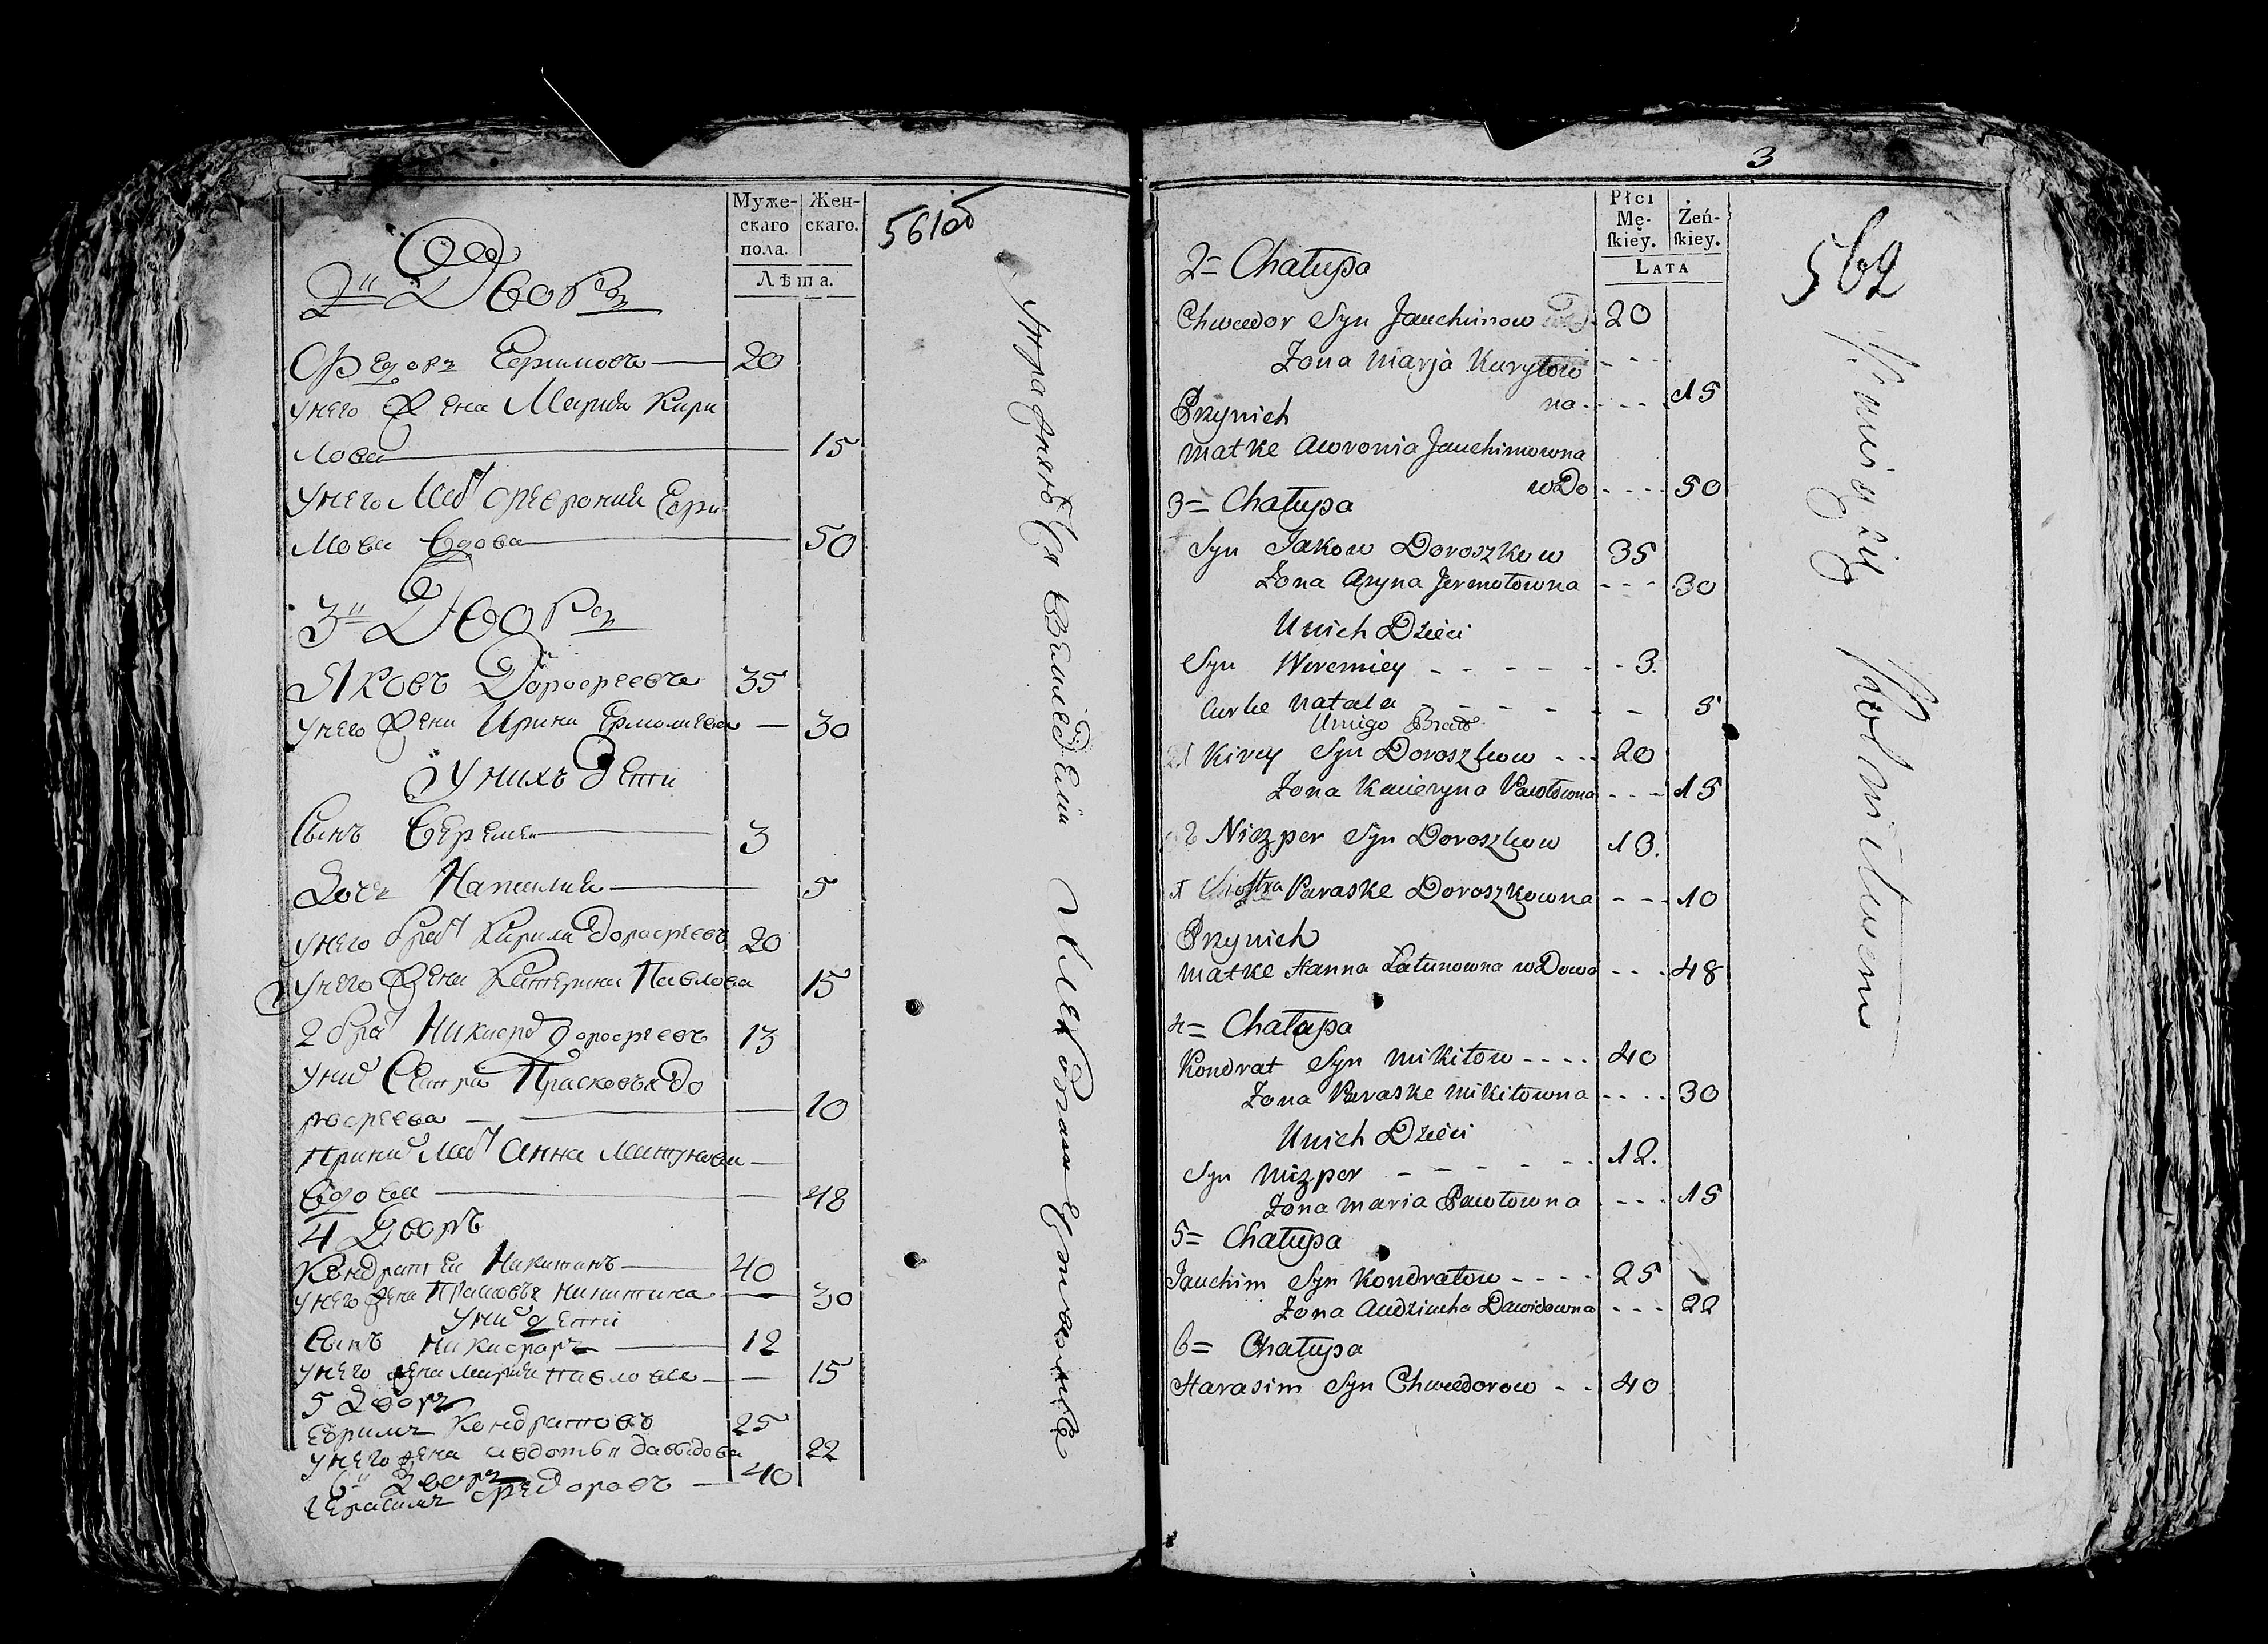 Муже-
скаго
пола.
Жен-
скаго.
Лѣта.
561об
2й Дворъ
Федоръ Ефимовъ — 20
унего Жена Мария Кири
лова — 15
унего Мат Феврония Ефи
мова вдова — 50
3й Дворъ
Яковъ Дорофеевъ 35
унего Жена Ирина Ермолаева — 30
Унихъ Дети
Сынъ Еремеи — 3
Дочь Наталия — 5
унего брат Кирила Дорофеевъ 20
унего Жена Катерина Павлова 15
2 брат Никифор Дорофеевъ 13
уних Сестра Прасковья До
рофеева — 10
При них Мат Анна
вдова — 48
4 Дворъ
Кондратеи Никитинъ — 40
унего жена Прасковья Никитина — 30
уних дети
Сынъ Никифоръ — 12
унего жена Мария Павлова — 15
5 Дворъ
Ефимъ Кондратовъ 25
унего жена Авдотья Давыдова 22
6й Дворъ
Герасимъ Федоровъ — 40
3
Płci
Mę-
skiey.
Żeń-
skiey.
LATA
562
2= Chałupa
Chwedor Syn Jauchimow 20
Żona Marja Kuryłow
na - - - - 15
Przynich
Matke Awronia Jauchimowna
wDo - - - - 50
3= Chałupa
Syn Jakow Doroszkow 35
Żona Aryna Jermołowna - - - 30
Unich Dzieci
Syn Weremiey - - - - - - 3.
Curke Natala - - - - - - 5
Uniego Brat
1 Kirey Syn Doroszkow - - - 20
Żona Kacieryna Pawłowna - - - 15
2 Niczper Syn Doroszkow 13.
Siostra Paraske Doroszkowna - - - 10
Przynich
Matke Hanna Łatunowna wDowa - - - 48
4= Chałupa
Kondrat Syn Mikitow - - - - 40
Żona Paraske Mikitowna - - - - 30
Unich Dzieci
Syn Niczper - - - - - - 12.
Żona Maria Pawłowna - - - 15
5= Chałupa
Jauchim Syn Kondratow - - - - 25
Żona Audziucha Dawidowna - - - 22
6= Chałupa
Harasim Syn Chwedorow - - 40